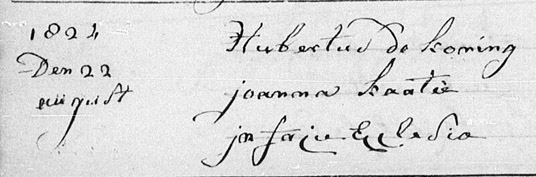 1824
Den 22
august
Hubertus de Koning
joanna Kaatie
jn facie Ecclesia